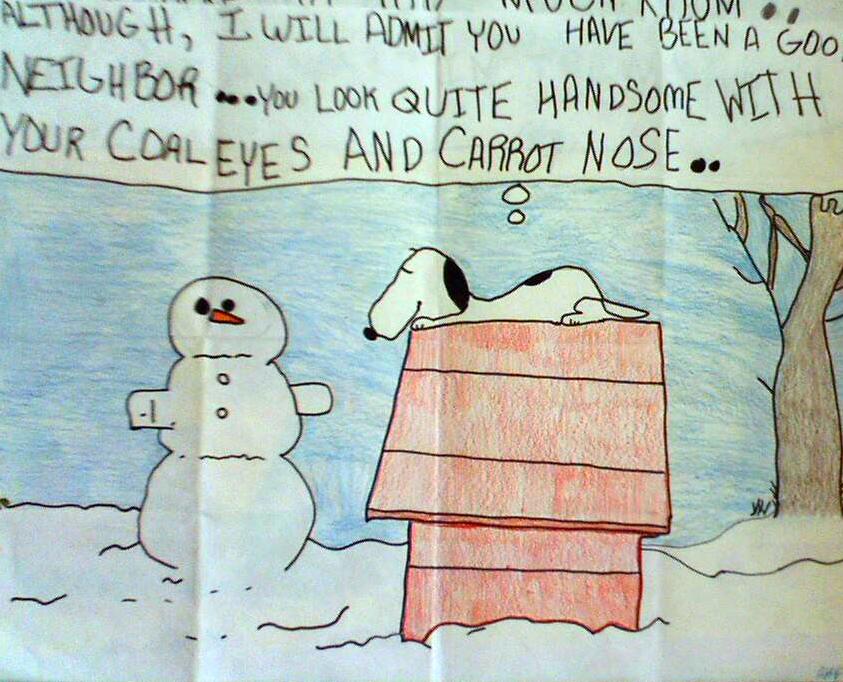 ALTHOUGH, I WILL ADMIT YOU HAVE BEEN A GOO
NEIGHBOR ...YOU LOOK QUITE HANDSOME WITH
YOUR COAL EYES AND CARROT NOSE..